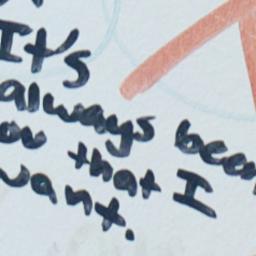 It's
always been
that I
want.